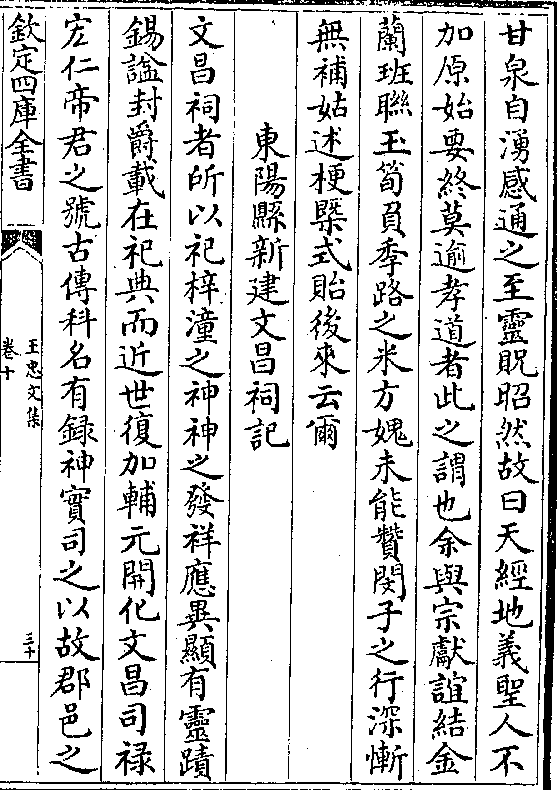 甘泉自湧感通之至靈貺昭然故曰天經地義聖人不
加原始要終莫逾孝道者此之謂也余與宗獻誼結金
蘭班聯玉筍負季路之米方媿未能贊閔子之行深慚
無補姑述梗槩式貽後來云爾
東陽縣新建文昌祠記
文昌祠者所以祀梓潼之神神之發祥應異顯有靈蹟
錫諡封爵載在祀典而近世復加輔元開化文昌司禄
宏仁帝君之號古傳科名有録神實司之以故郡邑之
欽定四庫全書
王忠文集
卷十
三十